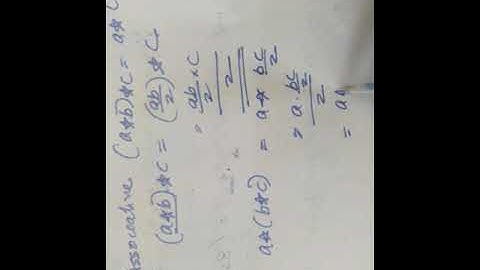 Associative (a*b)*c = a*
(a*b)*c = (ab/2)*c
= ab/2 × c / 2
a*(b*c) = a * bc/2
= a · bc/2 / 2
= a